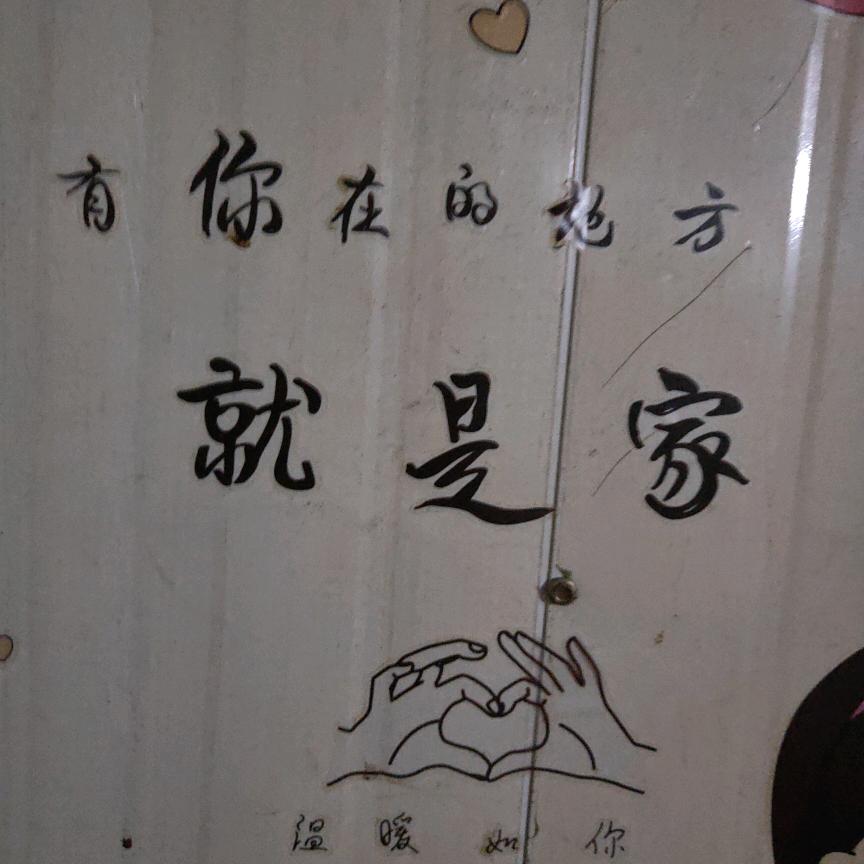 有你在的地方
就是家
温暖如你